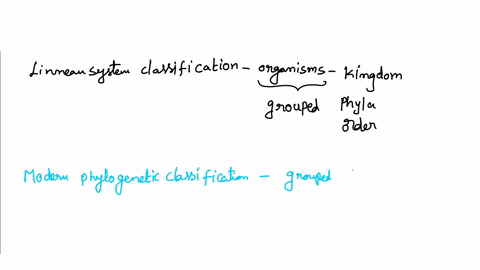 Linnean system classification - organisms - Kingdom
grouped Phyla
order
Modern phylogenetic classification - grouped